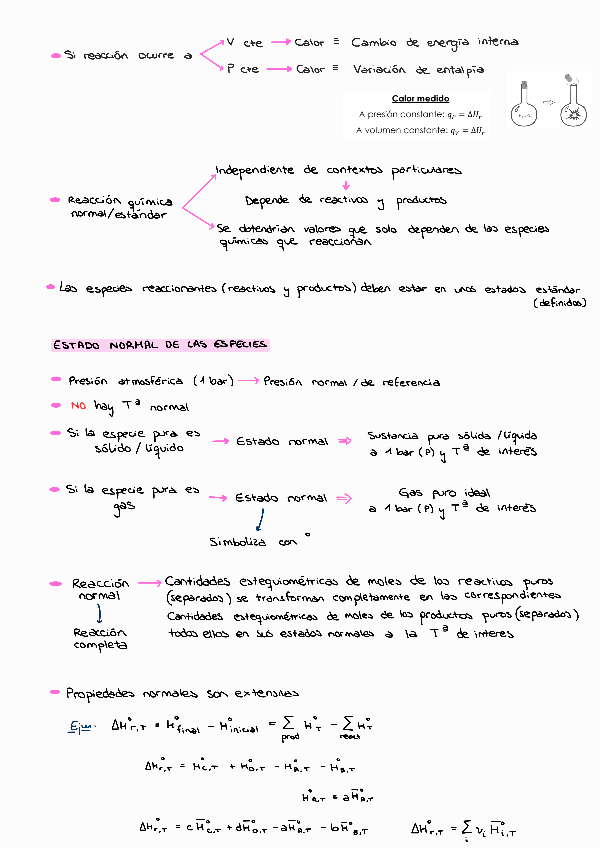 V cte → Calor ≡ Cambio de energía interna
• Si reacción ocurre a
P cte → Calor ≡ Variación de entalpía
Calor medido
A presión constante: q_P = ΔH_r
A volumen constante: q_V = ΔU_r
Independiente de contextos particulares
• Reacción química
normal/estándar
Depende de reactivos y productos
Se obtendrían valores que solo dependen de las especies
químicas que reaccionan
• Las especies reaccionantes (reactivos y productos) deben estar en unos estados estándar
(definidos)
ESTADO NORMAL DE LAS ESPECIES
• Presión atmosférica (1 bar) → Presión normal / de referencia
• NO hay Tª normal
• Si la especie pura es
sólido / líquido
→ Estado normal ⇒
Sustancia pura sólida / líquida
a 1 bar (P) y Tª de interés
• Si la especie pura es
gas
→ Estado normal ⇒
Gas puro ideal
a 1 bar (P) y Tª de interés
Simboliza con °
• Reacción
normal
↓
Reacción
completa
→ Cantidades estequiométricas de moles de los reactivos puros
(separados) se transforman completamente en las correspondientes
Cantidades estequiométricas de moles de los productos puros (separados)
todos ellos en sus estados normales a la Tª de interes
• Propiedades normales son extensivas
Ejm: ΔH°r,T = H°final − H°inicial = Σ prod H°T − Σ react H°T
ΔH°r,T = H°C,T + H°D,T − H°A,T − H°B,T
H°A,T = aH̅°A,T
ΔH°r,T = cH̅°C,T + dH̅°D,T − aH̅°A,T − bH̅°B,T ΔH°r,T = Σ i νi H̅°i,T